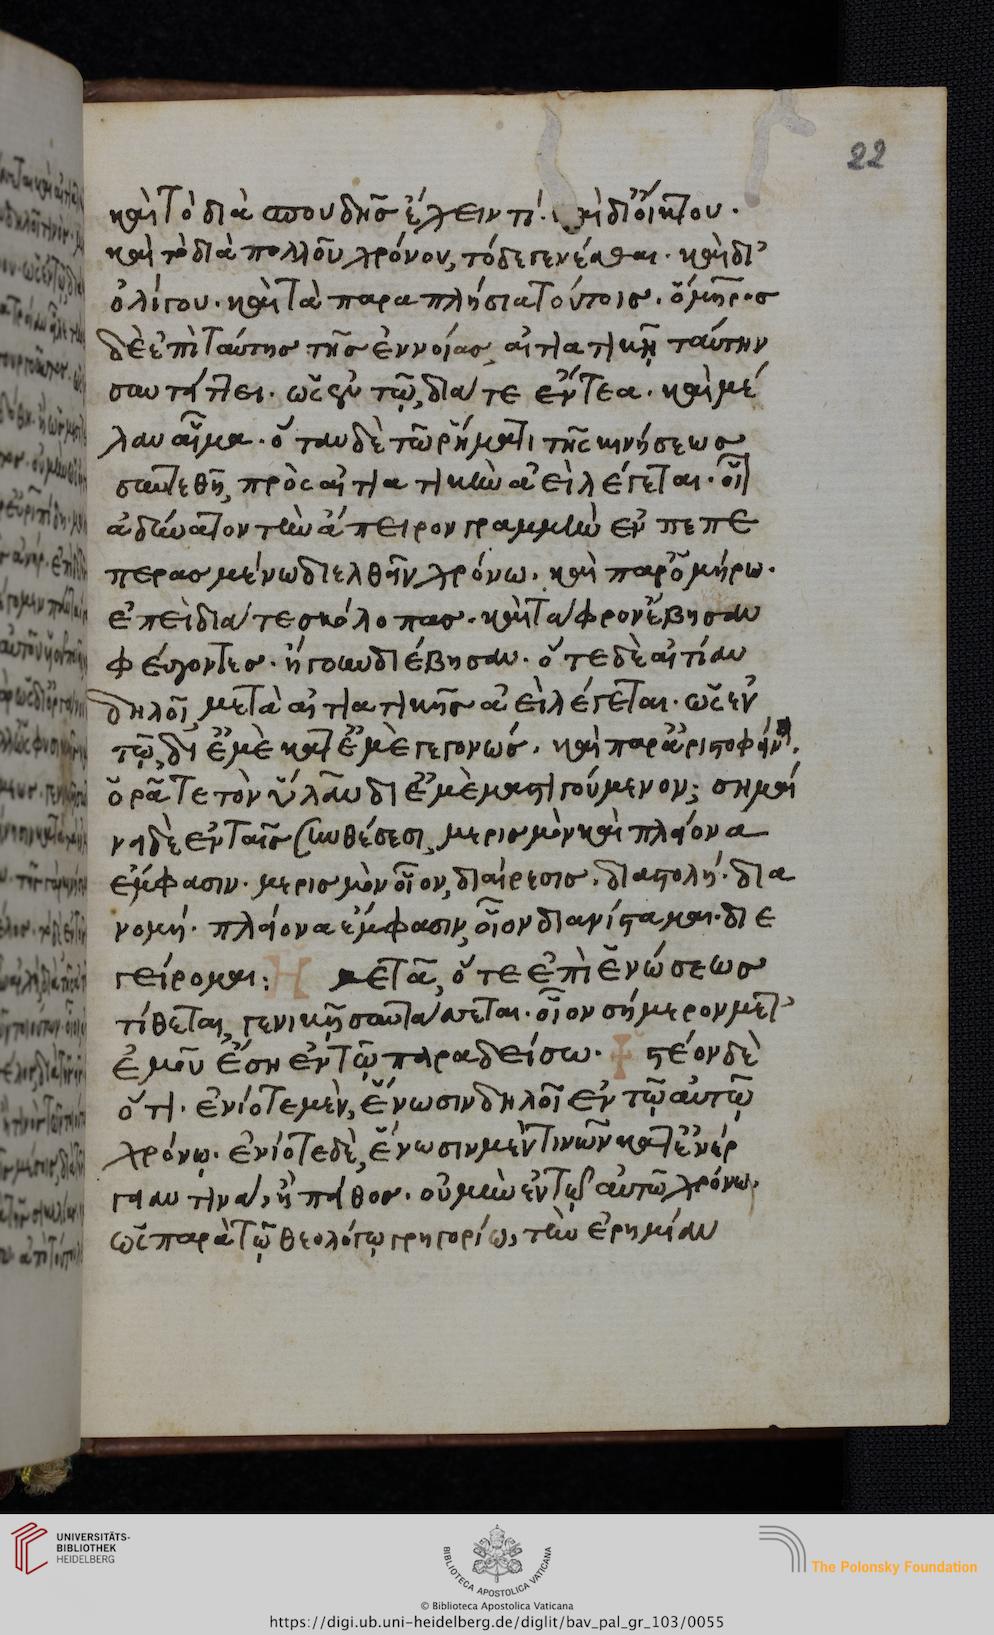 22
καὶ τὸ διὰ σπουδῆς ἔχειν τί. καὶ δι' οἴκτου.
καὶ τὸ διὰ πολλοῦ χρόνου, τόδε γενέσθαι. καὶ δι'
ὀλίγου. καὶ τὰ παραπλήσια τούτοις. ὅμηρος
δὲ ἐπὶ ταύτης τῆς ἐννοίας, αἰτιατικῇ ταύτην
συντάττει. ὡς ἐν τῷ, διά τε ἔντεα. καὶ μέ
λαν αἷμα. ὅταν δὲ τῷ ῥήματι τῆς κινήσεως
συντεθῇ, πρὸς αἰτιατικὴν ἀεὶ λέγεται. οἷον
ἀδύνατον τὴν ἄπειρον γραμμὴν ἐν πεπε
περασμένω διελθεῖν χρόνω. καὶ παρ' ὁμήρω.
ἐπεὶ διά τε σκόλοπας. καὶ τάφρον ἔβησαν
φεύγοντες. ἤγουν διέβησαν. ὅτε δὲ αἰτίαν
δηλοῖ, μετὰ αἰτιατικῆς ἀεὶ λέγεται. ὡς ἐν
τῷ, δι' ἐμὲ κατ' ἐμὲ γεγονώς. καὶ παρ' ἀριστοφάν.
ὁρᾶτε τὸν ὕλαν δι' ἐμὲ μαστιγούμενον; σημαί
νει δὲ ἐν ταῖς συνθέσεσι, μερισμὸν καὶ πλείονα
ἔμφασιν. μερισμὸν οἷον, διαίρεσις. διαστολή. δια
νομή. πλείονα ἔμφασιν, οἷον διανίσταμαι. διε
γείρομαι: Η μετὰ, ὅτε ἐπὶ ἑνώσεως
τίθεται, γενικῇ συντάττεται. οἷον σήμερον μετ'
ἐμοῦ ἔση ἐν τῷ παραδείσω. ἰστέον δὲ
ὅτι. ἐνίοτε μὲν, ἕνωσιν δηλοῖ ἐν τῷ αὐτῷ
χρόνῳ. ἐνίοτε δὲ, ἕνωσιν μὲν τινῶν κατ' ἐνέρ
γειαν τινά, ἢ πάθος. οὐ μὴν ἐν τῷ αὐτῶ χρόνω.
ὡς παρὰ τῷ θεολόγῳ γρηγορίω, τὴν ἐρημίαν
UNIVERSITÄTS-
BIBLIOTHEK
HEIDELBERG
BIBLIOTECA APOSTOLICA VATICANA
The Polonsky Foundation
© Biblioteca Apostolica Vaticana
https://digi.ub.uni-heidelberg.de/diglit/bav_pal_gr_103/0055